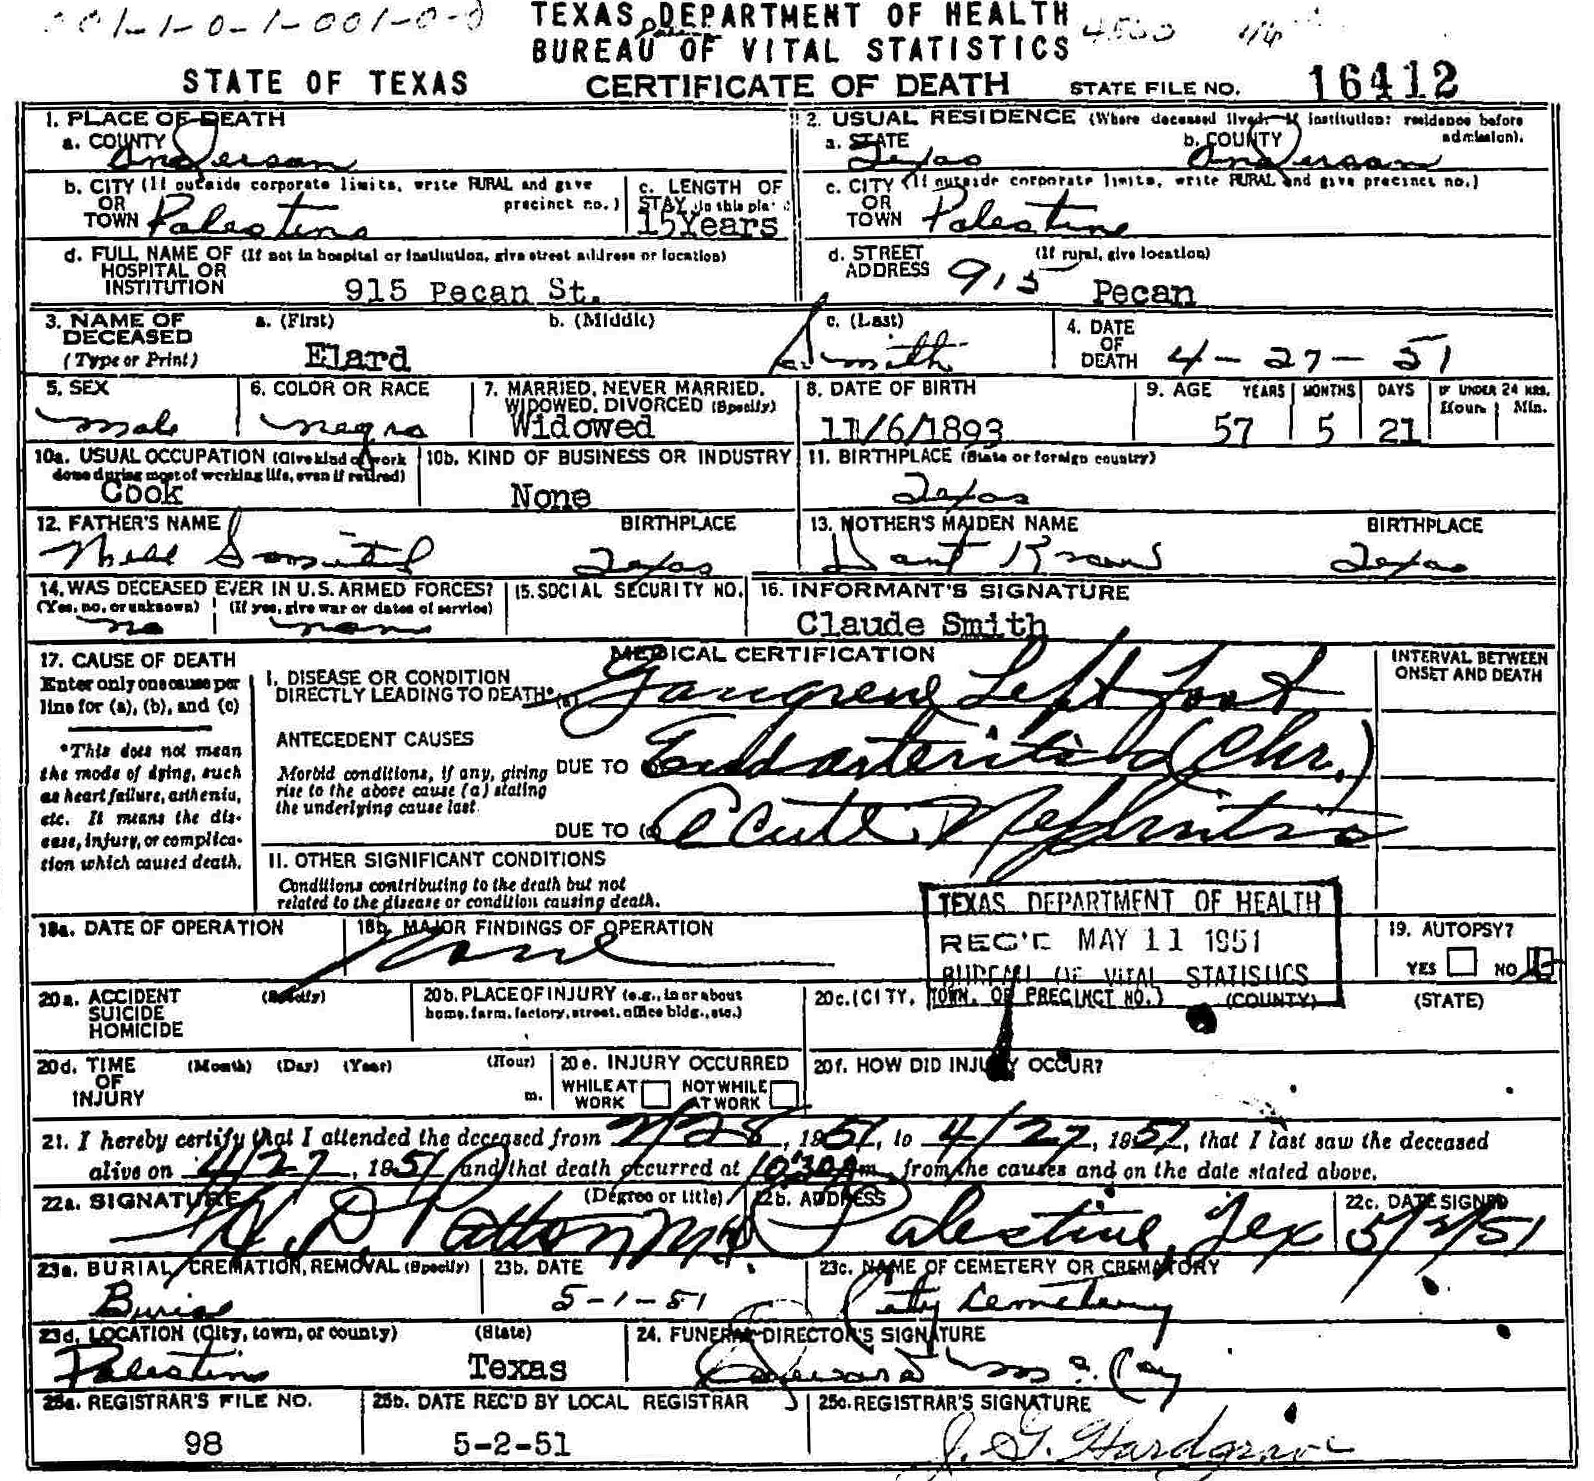 001-1-0-1-001-0-0
TEXAS DEPARTMENT OF HEALTH
BUREAU OF VITAL STATISTICS
STATE OF TEXAS CERTIFICATE OF DEATH STATE FILE NO. 16412
1. PLACE OF DEATH 2. USUAL RESIDENCE (Where deceased lived. If institution: residence before admission).
a. COUNTY Anderson a. STATE Texas b. COUNTY Anderson
b. CITY (If outside corporate limits, write RURAL and give precinct no.) OR TOWN Palestine c. LENGTH OF STAY (in this place) 15 Years c. CITY (If outside corporate limits, write RURAL and give precinct no.) OR TOWN Palestine
d. FULL NAME OF (If not in hospital or institution, give street address or location) HOSPITAL OR INSTITUTION 915 Pecan St. d. STREET ADDRESS (If rural, give location) 915 Pecan
3. NAME OF DECEASED (Type or Print) a. (First) Elard b. (Middle) c. (Last) Smith 4. DATE OF DEATH 4-27-51
5. SEX Male 6. COLOR OR RACE negro 7. MARRIED, NEVER MARRIED, WIDOWED, DIVORCED (Specify) Widowed 8. DATE OF BIRTH 11/6/1893 9. AGE YEARS 57 MONTHS 5 DAYS 21 IF UNDER 24 HRS. Hours Min.
10a. USUAL OCCUPATION (Give kind of work done during most of working life, even if retired) Cook 10b. KIND OF BUSINESS OR INDUSTRY None 11. BIRTHPLACE (State or foreign country) Texas
12. FATHER'S NAME Smith BIRTHPLACE Texas 13. MOTHER'S MAIDEN NAME BIRTHPLACE Texas
14. WAS DECEASED EVER IN U.S. ARMED FORCES? (Yes, no, or unknown) no (If yes, give war or dates of service) none 15. SOCIAL SECURITY NO. 16. INFORMANT'S SIGNATURE Claude Smith
17. CAUSE OF DEATH Enter only one cause per line for (a), (b), and (c)
*This does not mean the mode of dying, such as heart failure, asthenia, etc. It means the disease, injury, or complication which caused death.
MEDICAL CERTIFICATION INTERVAL BETWEEN ONSET AND DEATH
I. DISEASE OR CONDITION DIRECTLY LEADING TO DEATH* (a) Gangrene Left Foot
ANTECEDENT CAUSES
Morbid conditions, if any, giving rise to the above cause (a) stating the underlying cause last.
DUE TO (b) Endarteritis (Chr.)
DUE TO (c) Acute Nephritis
II. OTHER SIGNIFICANT CONDITIONS
Conditions contributing to the death but not related to the disease or condition causing death.
TEXAS DEPARTMENT OF HEALTH
REC'D MAY 11 1951
BUREAU OF VITAL STATISTICS
18a. DATE OF OPERATION 18b. MAJOR FINDINGS OF OPERATION None 19. AUTOPSY? YES NO
20a. ACCIDENT SUICIDE HOMICIDE (Specify) 20b. PLACE OF INJURY (e.g., in or about home, farm, factory, street, office bldg., etc.) 20c. (CITY, TOWN, OR PRECINCT NO.) (COUNTY) (STATE)
20d. TIME OF INJURY (Month) (Day) (Year) (Hour) m. 20e. INJURY OCCURRED WHILE AT WORK NOT WHILE AT WORK 20f. HOW DID INJURY OCCUR?
21. I hereby certify that I attended the deceased from 2/28, 1951, to 4/27, 1951, that I last saw the deceased
alive on 4/27, 1951 and that death occurred at 10:30 m., from the causes and on the date stated above.
22a. SIGNATURE H. D. Patton M.D. (Degree or title) 22b. ADDRESS Palestine, Tex 22c. DATE SIGNED 5/2/51
23a. BURIAL, CREMATION, REMOVAL (Specify) Burial 23b. DATE 5-1-51 23c. NAME OF CEMETERY OR CREMATORY City Cemetery
23d. LOCATION (City, town, or county) Palestine (State) Texas 24. FUNERAL DIRECTOR'S SIGNATURE Edward McCoy
25a. REGISTRAR'S FILE NO. 98 25b. DATE REC'D BY LOCAL REGISTRAR 5-2-51 25c. REGISTRAR'S SIGNATURE J. G. Hardgrave